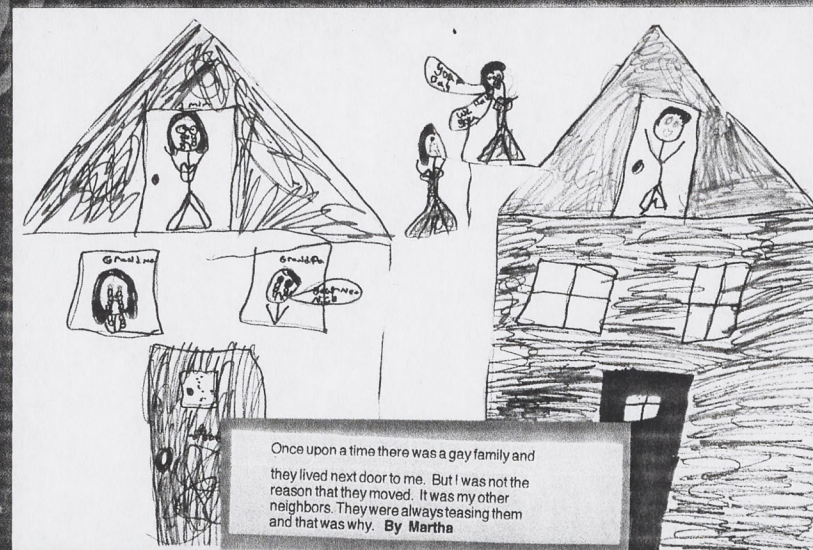 Grandma
Grandpa
Once upon a time there was a gay family and
they lived next door to me. But I was not the
reason that they moved. It was my other
neighbors. They were always teasing them
and that was why. By Martha